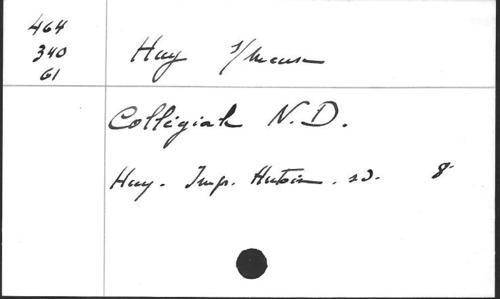 464
340
G1
Huy s/Meuse
Collégiale N.D.
Huy. Imp. Hutois. sd. 8°